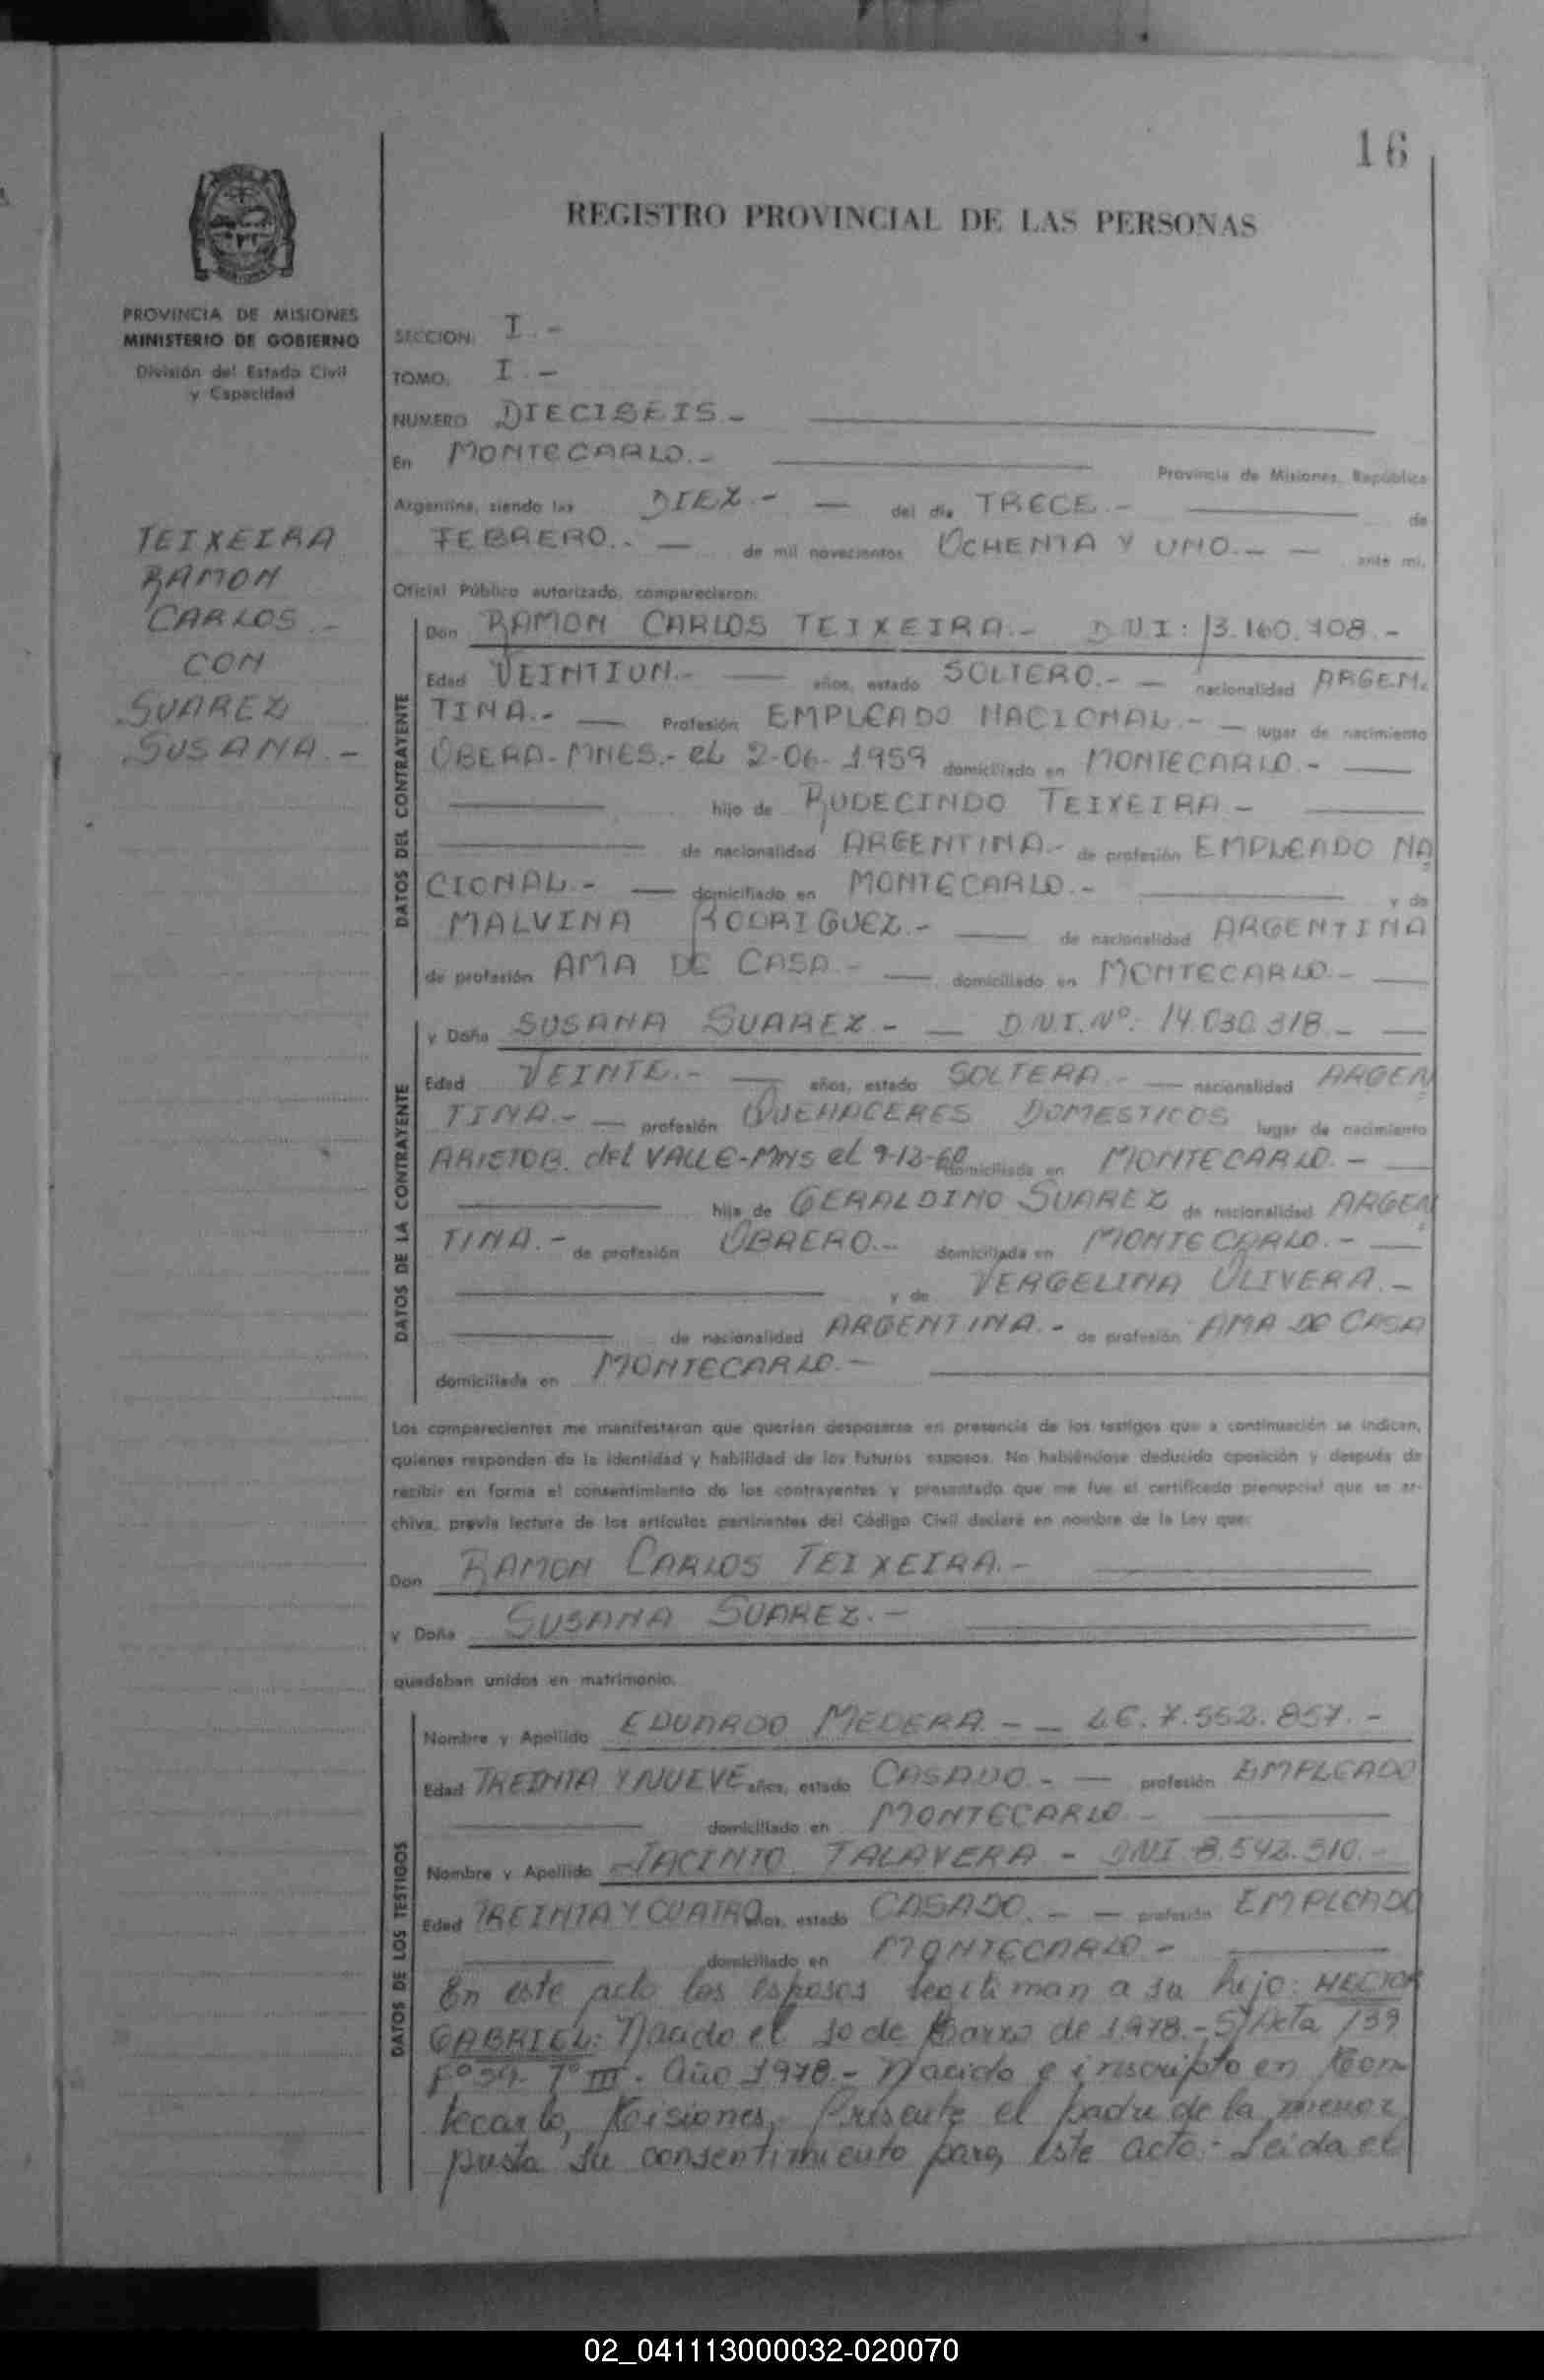 16
REGISTRO PROVINCIAL DE LAS PERSONAS
PROVINCIA DE MISIONES
MINISTERIO DE GOBIERNO
División del Estado Civil
y Capacidad
TEIXEIRA
RAMON
CARLOS.-
CON
SUAREZ
SUSANA.-
SECCION: I.-
TOMO: I.-
NUMERO DIECISEIS.-
En MONTECARLO.- Provincia de Misiones, República
Argentina, siendo las DIEZ.- — del día TRECE.- de
FEBRERO.- — de mil novecientos OCHENTA Y UNO.- — ante mi,
Oficial Público autorizado, comparecieron:
DATOS DEL CONTRAYENTE
Don RAMON CARLOS TEIXEIRA.- D.N.I: 13.160.708.-
Edad VEINTIUN.- — años, estado SOLTERO.- — nacionalidad ARGEN.
TINA.- — Profesión EMPLEADO NACIONAL.- — lugar de nacimiento
OBERA-MNES.- el 2-06-1959 domiciliado en MONTECARLO.- —
hijo de RUDECINDO TEIXEIRA.-
de nacionalidad ARGENTINA.- de profesión EMPLEADO NA
CIONAL.- — domiciliado en MONTECARLO.- y de
MALVINA RODRIGUEZ.- — de nacionalidad ARGENTINA
de profesión AMA DE CASA.- — domiciliado en MONTECARLO.- —
DATOS DE LA CONTRAYENTE
y Doña SUSANA SUAREZ.- — D.N.I. Nº: 14.030.318.- —
Edad VEINTE.- — años, estado SOLTERA.- — nacionalidad ARGEN
TINA.- — profesión QUEHACERES DOMESTICOS lugar de nacimiento
ARISTOB. del VALLE-MNS el 9-12-60 domiciliada en MONTECARLO.- —
hija de GERALDINO SUAREZ de nacionalidad ARGEN
TINA.- de profesión OBRERO.- domiciliada en MONTECARLO.- —
y de VERGELINA OLIVERA.-
de nacionalidad ARGENTINA.- de profesión AMA DE CASA
domiciliada en MONTECARLO.-
Los comparecientes me manifestaron que querían desposarse en presencia de los testigos que a continuación se indican,
quienes responden de la identidad y habilidad de los futuros esposos. No habiéndose deducido oposición y después de
recibir en forma el consentimiento de los contrayentes y presentado que me fue el certificado prenupcial que se ar-
chiva, previa lectura de los artículos pertinentes del Código Civil declaré en nombre de la Ley que:
Don RAMON CARLOS TEIXEIRA.-
y Doña SUSANA SUAREZ.-
quedaban unidos en matrimonio.
DATOS DE LOS TESTIGOS
Nombre y Apellido EDUARDO MEDERA.- — L.E. 7.552.857.-
Edad TREINTA Y NUEVE años, estado CASADO.- — profesión EMPLEADO
domiciliado en MONTECARLO.-
Nombre y Apellido JACINTO TALAVERA - DNI 8.542.510.-
Edad TREINTA Y CUATRO años, estado CASADO.- — profesión EMPLEADO
domiciliado en MONTECARLO.-
En este acto los esposos legitiman a su hijo: HECTOR
GABRIEL: Nacido el 10 de Marzo de 1978.- S/Acta 139
Fº 54. Tº III. Año 1978.- Nacido e inscripto en Mon-
tecarlo, Misiones, Presente el padre de la menor
presta su consentimiento para este acto.- Leida el
02_041113000032-020070